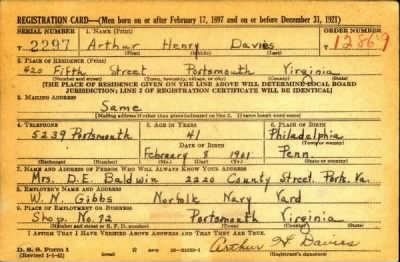 REGISTRATION CARD—(Men born on or after February 17, 1897 and on or before December 31, 1921)
SERIAL NUMBER 1. NAME (Print) ORDER NUMBER
T 2297 Arthur Henry Davies T 12869
2. PLACE OF RESIDENCE (Print)
420 Fifth Street Portsmouth Virginia
(Number and street) (Town, township, village, or city) (County) (State)
[THE PLACE OF RESIDENCE GIVEN ON THE LINE ABOVE WILL DETERMINE LOCAL BOARD
JURISDICTION; LINE 2 OF REGISTRATION CERTIFICATE WILL BE IDENTICAL]
3. MAILING ADDRESS
Same
[Mailing address if other than place indicated on line 2. If same insert word same]
4. TELEPHONE 5. AGE IN YEARS 6. PLACE OF BIRTH
5239 Portsmouth 41 Philadelphia
DATE OF BIRTH (Town or county)
February 8 1901 Penn
(Exchange) (Number) (Mo.) (Day) (Yr.) (State or country)
7. NAME AND ADDRESS OF PERSON WHO WILL ALWAYS KNOW YOUR ADDRESS
Mrs. D.E. Baldwin 2220 County Street. Ports. Va.
8. EMPLOYER'S NAME AND ADDRESS
W. N. Gibbs Norfolk Navy Yard
9. PLACE OF EMPLOYMENT OR BUSINESS
Shop No. 72 Portsmouth Virginia
(Number and street or R. F. D. number) (Town) (County) (State)
I AFFIRM THAT I HAVE VERIFIED ABOVE ANSWERS AND THAT THEY ARE TRUE.
D. S. S. Form 1
(Revised 1-1-42) Arthur H Davies
(Registrant's signature)